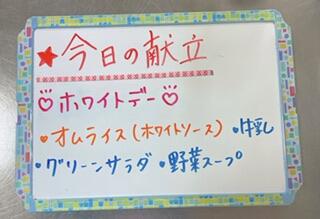 ★今日の献立
♡ホワイトデー♡
・オムライス(ホワイトソース) ・牛乳
・グリーンサラダ ・野菜スープ